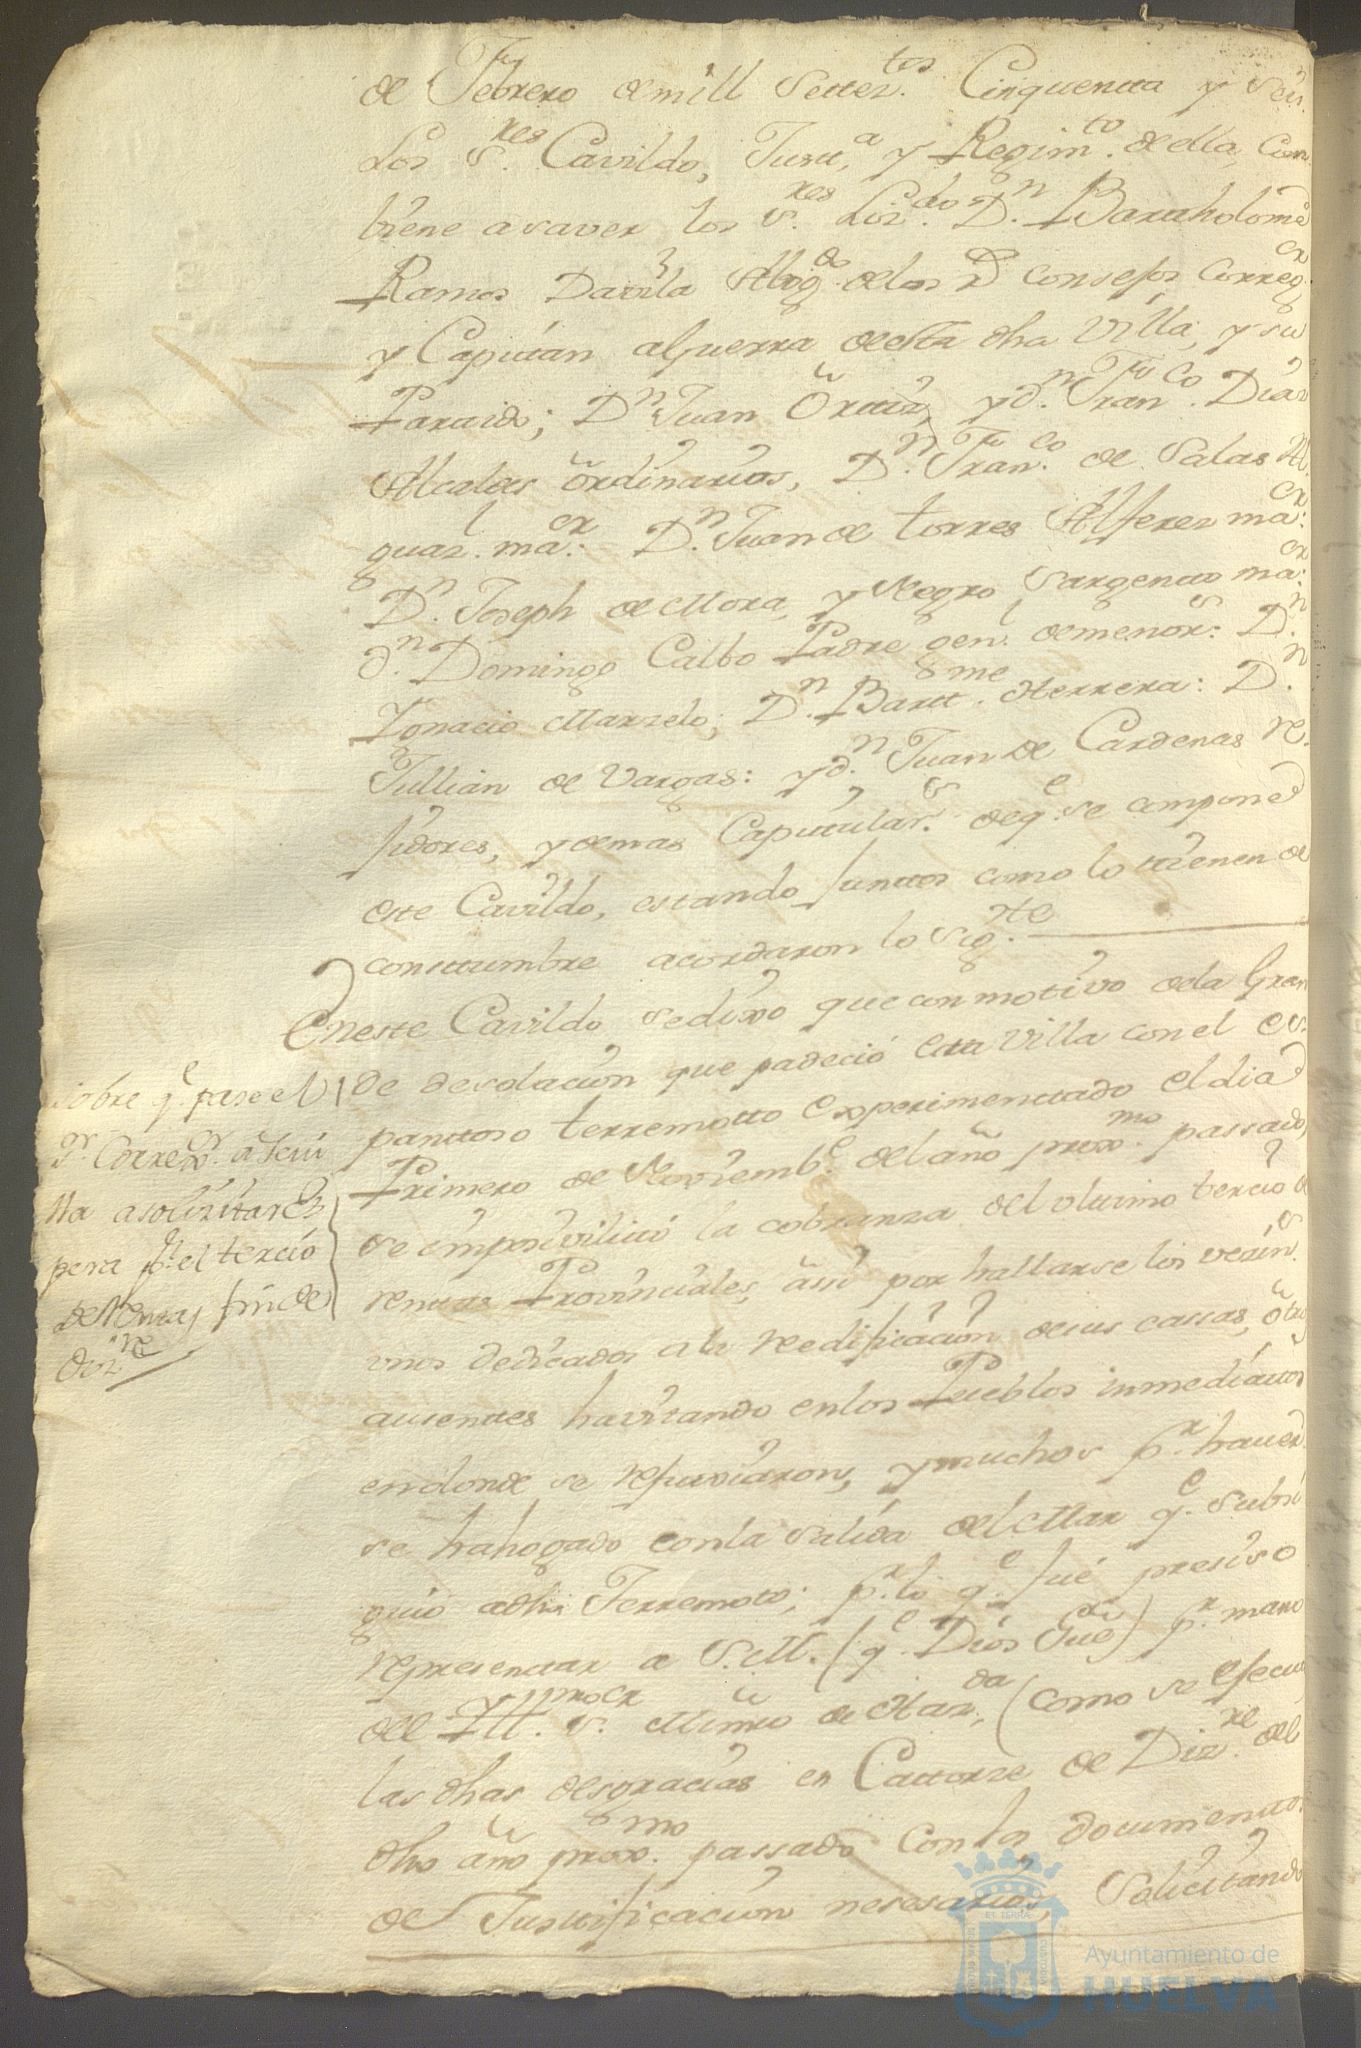 de Febrero de mill Settez.tos Cinquentta y Seis
Los S.res Cavildo, Justt.a y Regim.to de ella, Com
biene a saver los S.res Liz.do D.n Bartholome
Ramos Davila Abog.do de los R.s Consejos Correg.or
y Capitán a Guerra de esta dha Villa, y su
Partido; D.n Juan Orttiz, y d.n Fran.co Diaz
Alcaldes ordinarios, D.n Fran.co de Salas Al
guaz.l ma.or D.n Juan de torres Alferez ma.or
D.n Joseph de Mora, y Negro Sargento ma.or
d.n Domingo Calbo Padre gen.l de menor.s D.n
Ignacio Marzelo; D.n Bartt.me Herrera: D.n
Jullian de Vargas: y d.n Juan de Cardenas Re
jidores, y demas Capitular.s de q.e se compone
este Cavildo, estando junttos como lo tienen de
consttumbre acordaron lo sig.te
En este Cavildo se dixo que con motivo de la Gran
de desolación que padeció esta Villa con el es
panttoso terremotto experimenttado el dia
Primero de Noviemb.e del año prox.mo passado,
se imposivilitó la cobranza del ultimo tercio de
renttas Provinciales, assi por hallarse los vezin.s
unos dedicados a la reedificación de sus cassas, otros
ausentes havitando en los Pueblos inmediatos
en donde se refuxiaron, y muchos p.r haver
se hahogado con la salida del Mar q.e subsi
guió a dho Terremoto; p.r lo q.e fué presiso
representtar a S.M. (q.e Dios Gue) p.r mano
del Ill.mo S.or Minro de Haz.da (como se efectuó
las dhas desgracias en Cattorze de Diz.re del
dho año prox.mo passado con los documenttos
de Justtificación nesesarios, Solicitando
Sobre q.e pase el
S.r Corre.or a Sevi
lla a solizitar es
pera p.r el tercio
de Rentas fin de
Diz.re
Ayuntamiento de
HUELVA